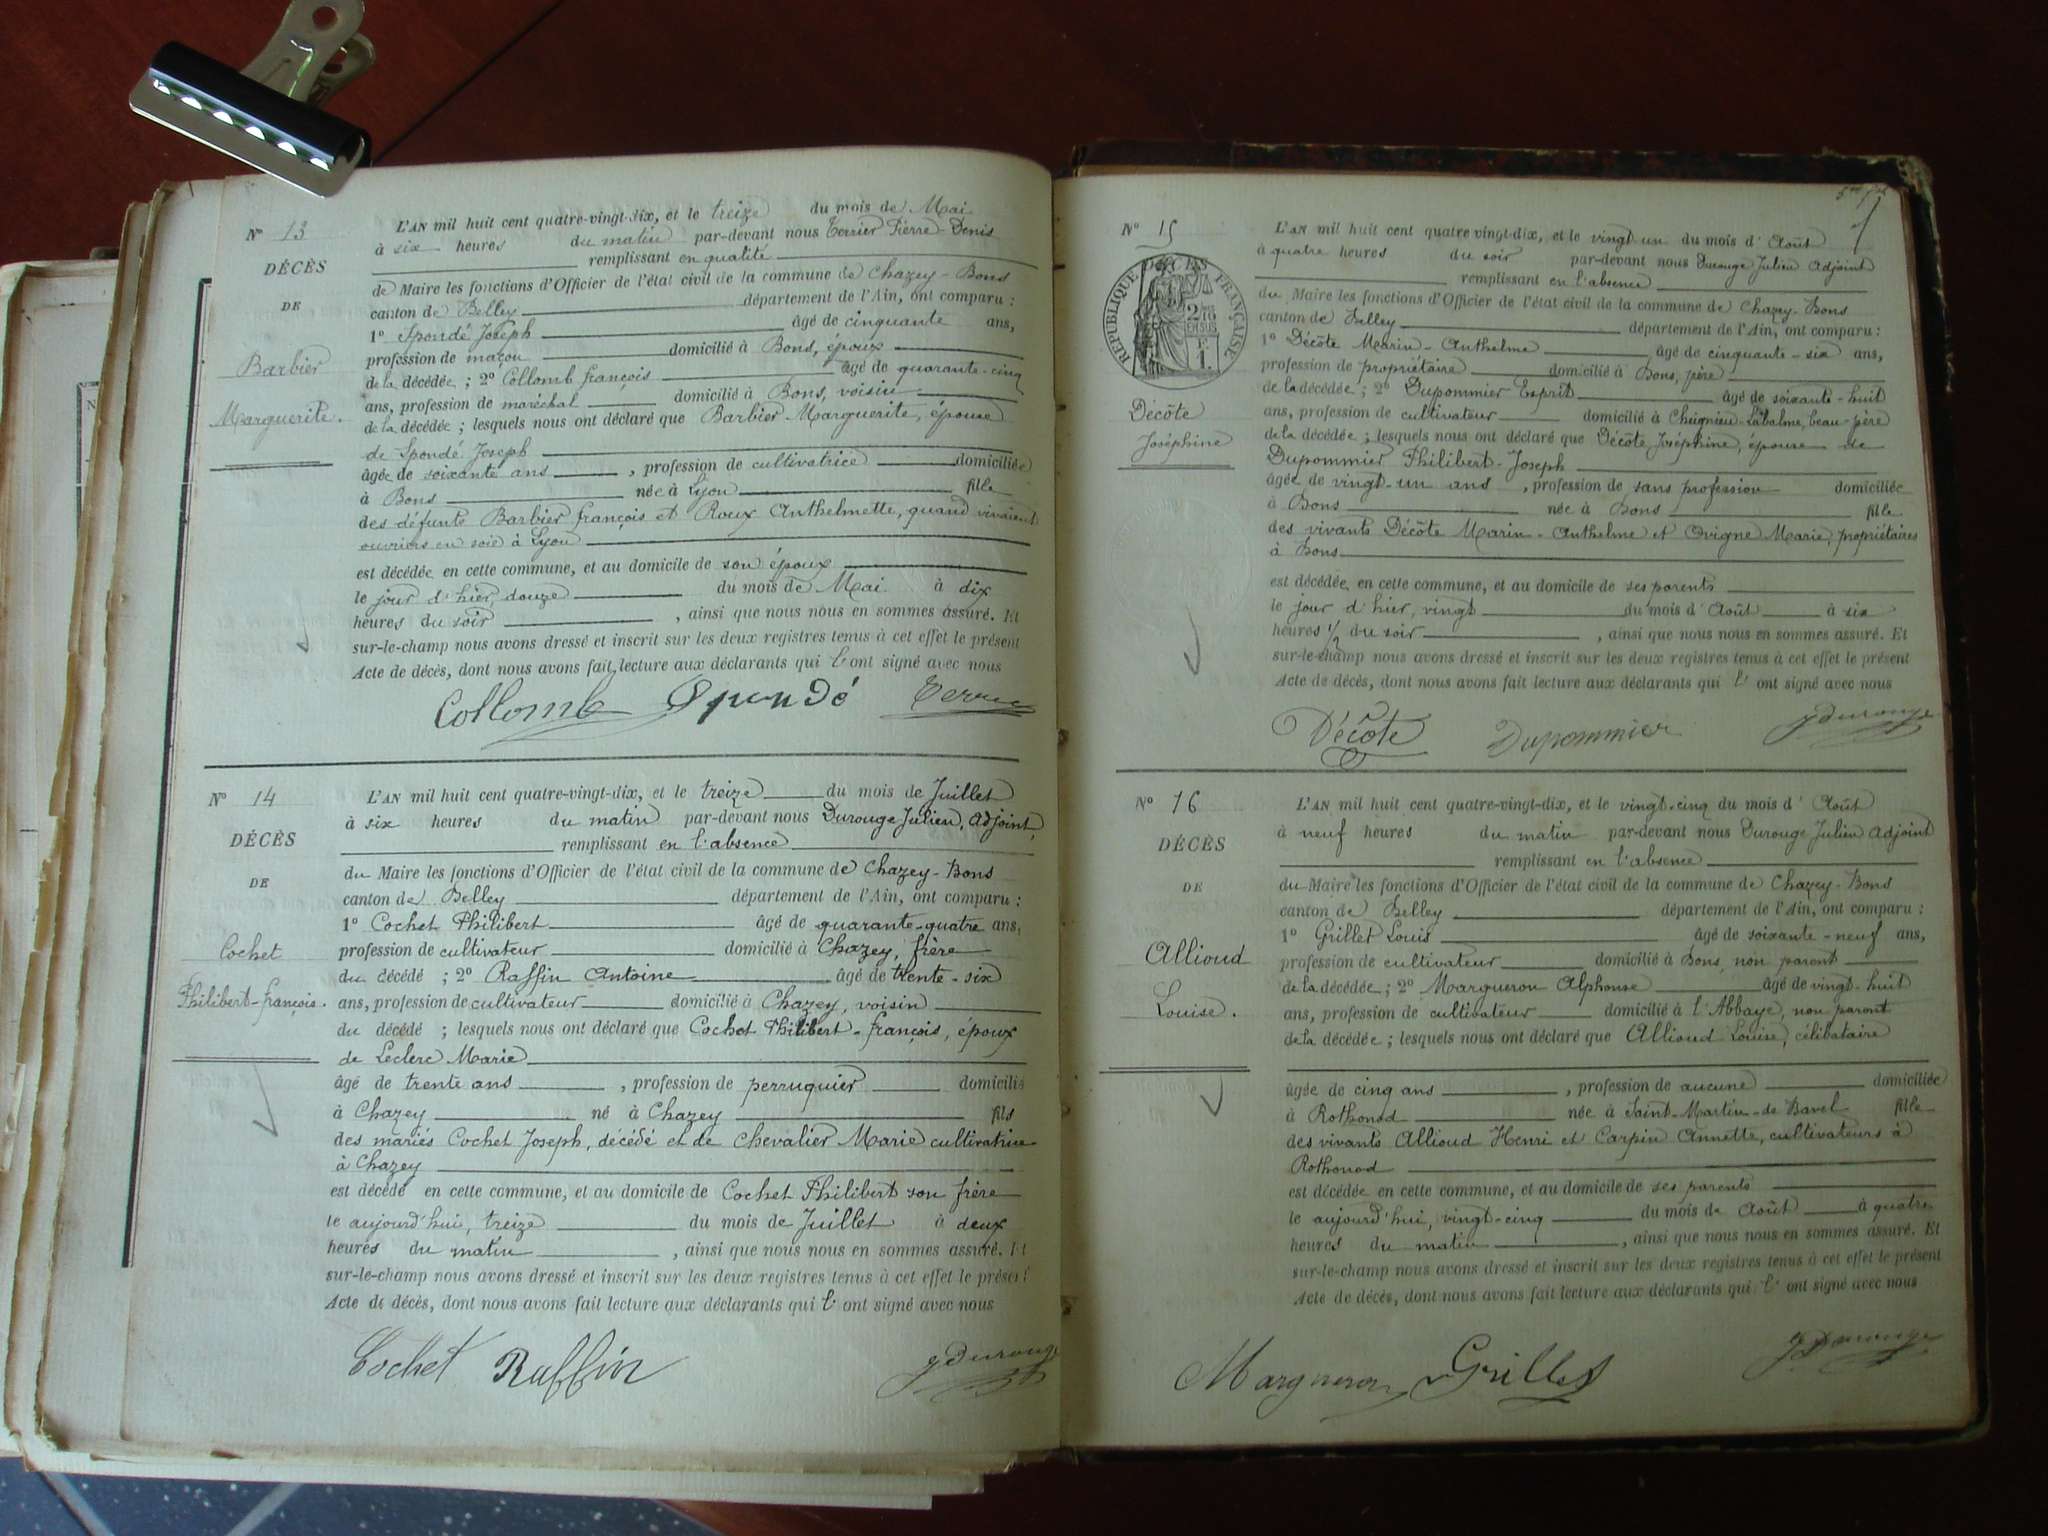 N° 13
DÉCÈS
DE
Barbier
Marguerite.
L'AN mil huit cent quatre-vingt-dix, et le treize du mois de Mai
à six heures du matin par-devant nous Terrier Pierre-Denis
remplissant en qualité
de Maire les fonctions d'Officier de l'état civil de la commune de Chazey-Bons
canton de Belley département de l'Ain, ont comparu :
1° Spondé Joseph âgé de cinquante ans,
profession de maçon domicilié à Bons, époux
de la décédée ; 2° Collomb françois âgé de quarante-cinq
ans, profession de maréchal domicilié à Bons, voisin
de la décédée ; lesquels nous ont déclaré que Barbier Marguerite, épouse
de Spondé Joseph
âgée de soixante ans , profession de cultivatrice domiciliée
à Bons née à Lyon fille
des défunts Barbier françois et Roux Anthelmette, quand vivaient
ouvriers en soie à Lyon
est décédée en cette commune, et au domicile de son époux
le jour d'hier, douze du mois de Mai à dix
heures du soir , ainsi que nous nous en sommes assuré. Et
sur-le-champ nous avons dressé et inscrit sur les deux registres tenus à cet effet le présent
Acte de décès, dont nous avons fait lecture aux déclarants qui l'ont signé avec nous
Collomb Spondé Terrier
N° 14
DÉCÈS
DE
Cochet
Philibert-françois.
L'AN mil huit cent quatre-vingt-dix, et le treize du mois de Juillet
à six heures du matin par-devant nous Durouge Julien, adjoint,
remplissant en l'absence
du Maire les fonctions d'Officier de l'état civil de la commune de Chazey-Bons
canton de Belley département de l'Ain, ont comparu :
1° Cochet Philibert âgé de quarante-quatre ans,
profession de cultivateur domicilié à Chazey, frère
du décédé ; 2° Raffin Antoine âgé de trente-six
ans, profession de cultivateur domicilié à Chazey, voisin
du décédé ; lesquels nous ont déclaré que Cochet Philibert-françois, époux
de Leclerc Marie
âgé de trente ans , profession de perruquier domicilié
à Chazey né à Chazey fils
des mariés Cochet Joseph, décédé et de Chevalier Marie cultivatrice
à Chazey
est décédé en cette commune, et au domicile de Cochet Philibert son frère
le aujourd'hui, treize du mois de Juillet à deux
heures du matin , ainsi que nous nous en sommes assuré. Et
sur-le-champ nous avons dressé et inscrit sur les deux registres tenus à cet effet le présent
Acte de décès, dont nous avons fait lecture aux déclarants qui l'ont signé avec nous
Cochet Raffin J Durouge
N° 15
DÉCÈS
RÉPUBLIQUE FRANÇAISE
2/10 EN SUS
1 F
Décôte
Joséphine
L'AN mil huit cent quatre vingt-dix, et le vingt un du mois d'Août
à quatre heures du soir par-devant nous Durouge Julien adjoint
remplissant en l'absence
du Maire les fonctions d'Officier de l'état civil de la commune de Chazey-Bons
canton de Belley département de l'Ain, ont comparu :
1° Décôte Marin-Anthelme âgé de cinquante-six ans,
profession de propriétaire domicilié à Bons, père
de la décédée ; 2° Dupommier Esprit âgé de soixante-huit
ans, profession de cultivateur domicilié à Cheignieu-Labalme, beau-père
de la décédée ; lesquels nous ont déclaré que Décôte Joséphine, épouse de
Dupommier Philibert-Joseph
âgée de vingt-un ans , profession de sans profession domiciliée
à Bons née à Bons fille
des vivants Décôte Marin-Anthelme et Ovigne Marie, propriétaires
à Bons
est décédée en cette commune, et au domicile de ses parents
le jour d'hier, vingt du mois d'Août à six
heures 1/2 du soir , ainsi que nous nous en sommes assuré. Et
sur-le-champ nous avons dressé et inscrit sur les deux registres tenus à cet effet le présent
Acte de décès, dont nous avons fait lecture aux déclarants qui l'ont signé avec nous
Décôte Dupommier J Durouge
N° 16
DÉCÈS
DE
Allioud
Louise.
L'AN mil huit cent quatre-vingt-dix, et le vingt-cinq du mois d'Août
à neuf heures du matin par-devant nous Durouge Julien adjoint
remplissant en l'absence
du Maire les fonctions d'Officier de l'état civil de la commune de Chazey-Bons
canton de Belley département de l'Ain, ont comparu :
1° Grillet Louis âgé de soixante-neuf ans,
profession de cultivateur domicilié à Bons, non parent
de la décédée ; 2° Margueron Alphonse âgé de vingt-huit
ans, profession de cultivateur domicilié à l'Abbaye, non parent
de la décédée ; lesquels nous ont déclaré que Allioud Louise, célibataire
âgée de cinq ans , profession de aucune domiciliée
à Rothonod née à Saint-Martin-de-Bavel fille
des vivants Allioud Henri et Carpin Annette, cultivateurs à
Rothonod
est décédée en cette commune, et au domicile de ses parents
le aujourd'hui, vingt-cinq du mois de Août à quatre
heures du matin , ainsi que nous nous en sommes assuré. Et
sur-le-champ nous avons dressé et inscrit sur les deux registres tenus à cet effet le présent
Acte de décès, dont nous avons fait lecture aux déclarants qui l'ont signé avec nous
Margueron Grillet J Durouge